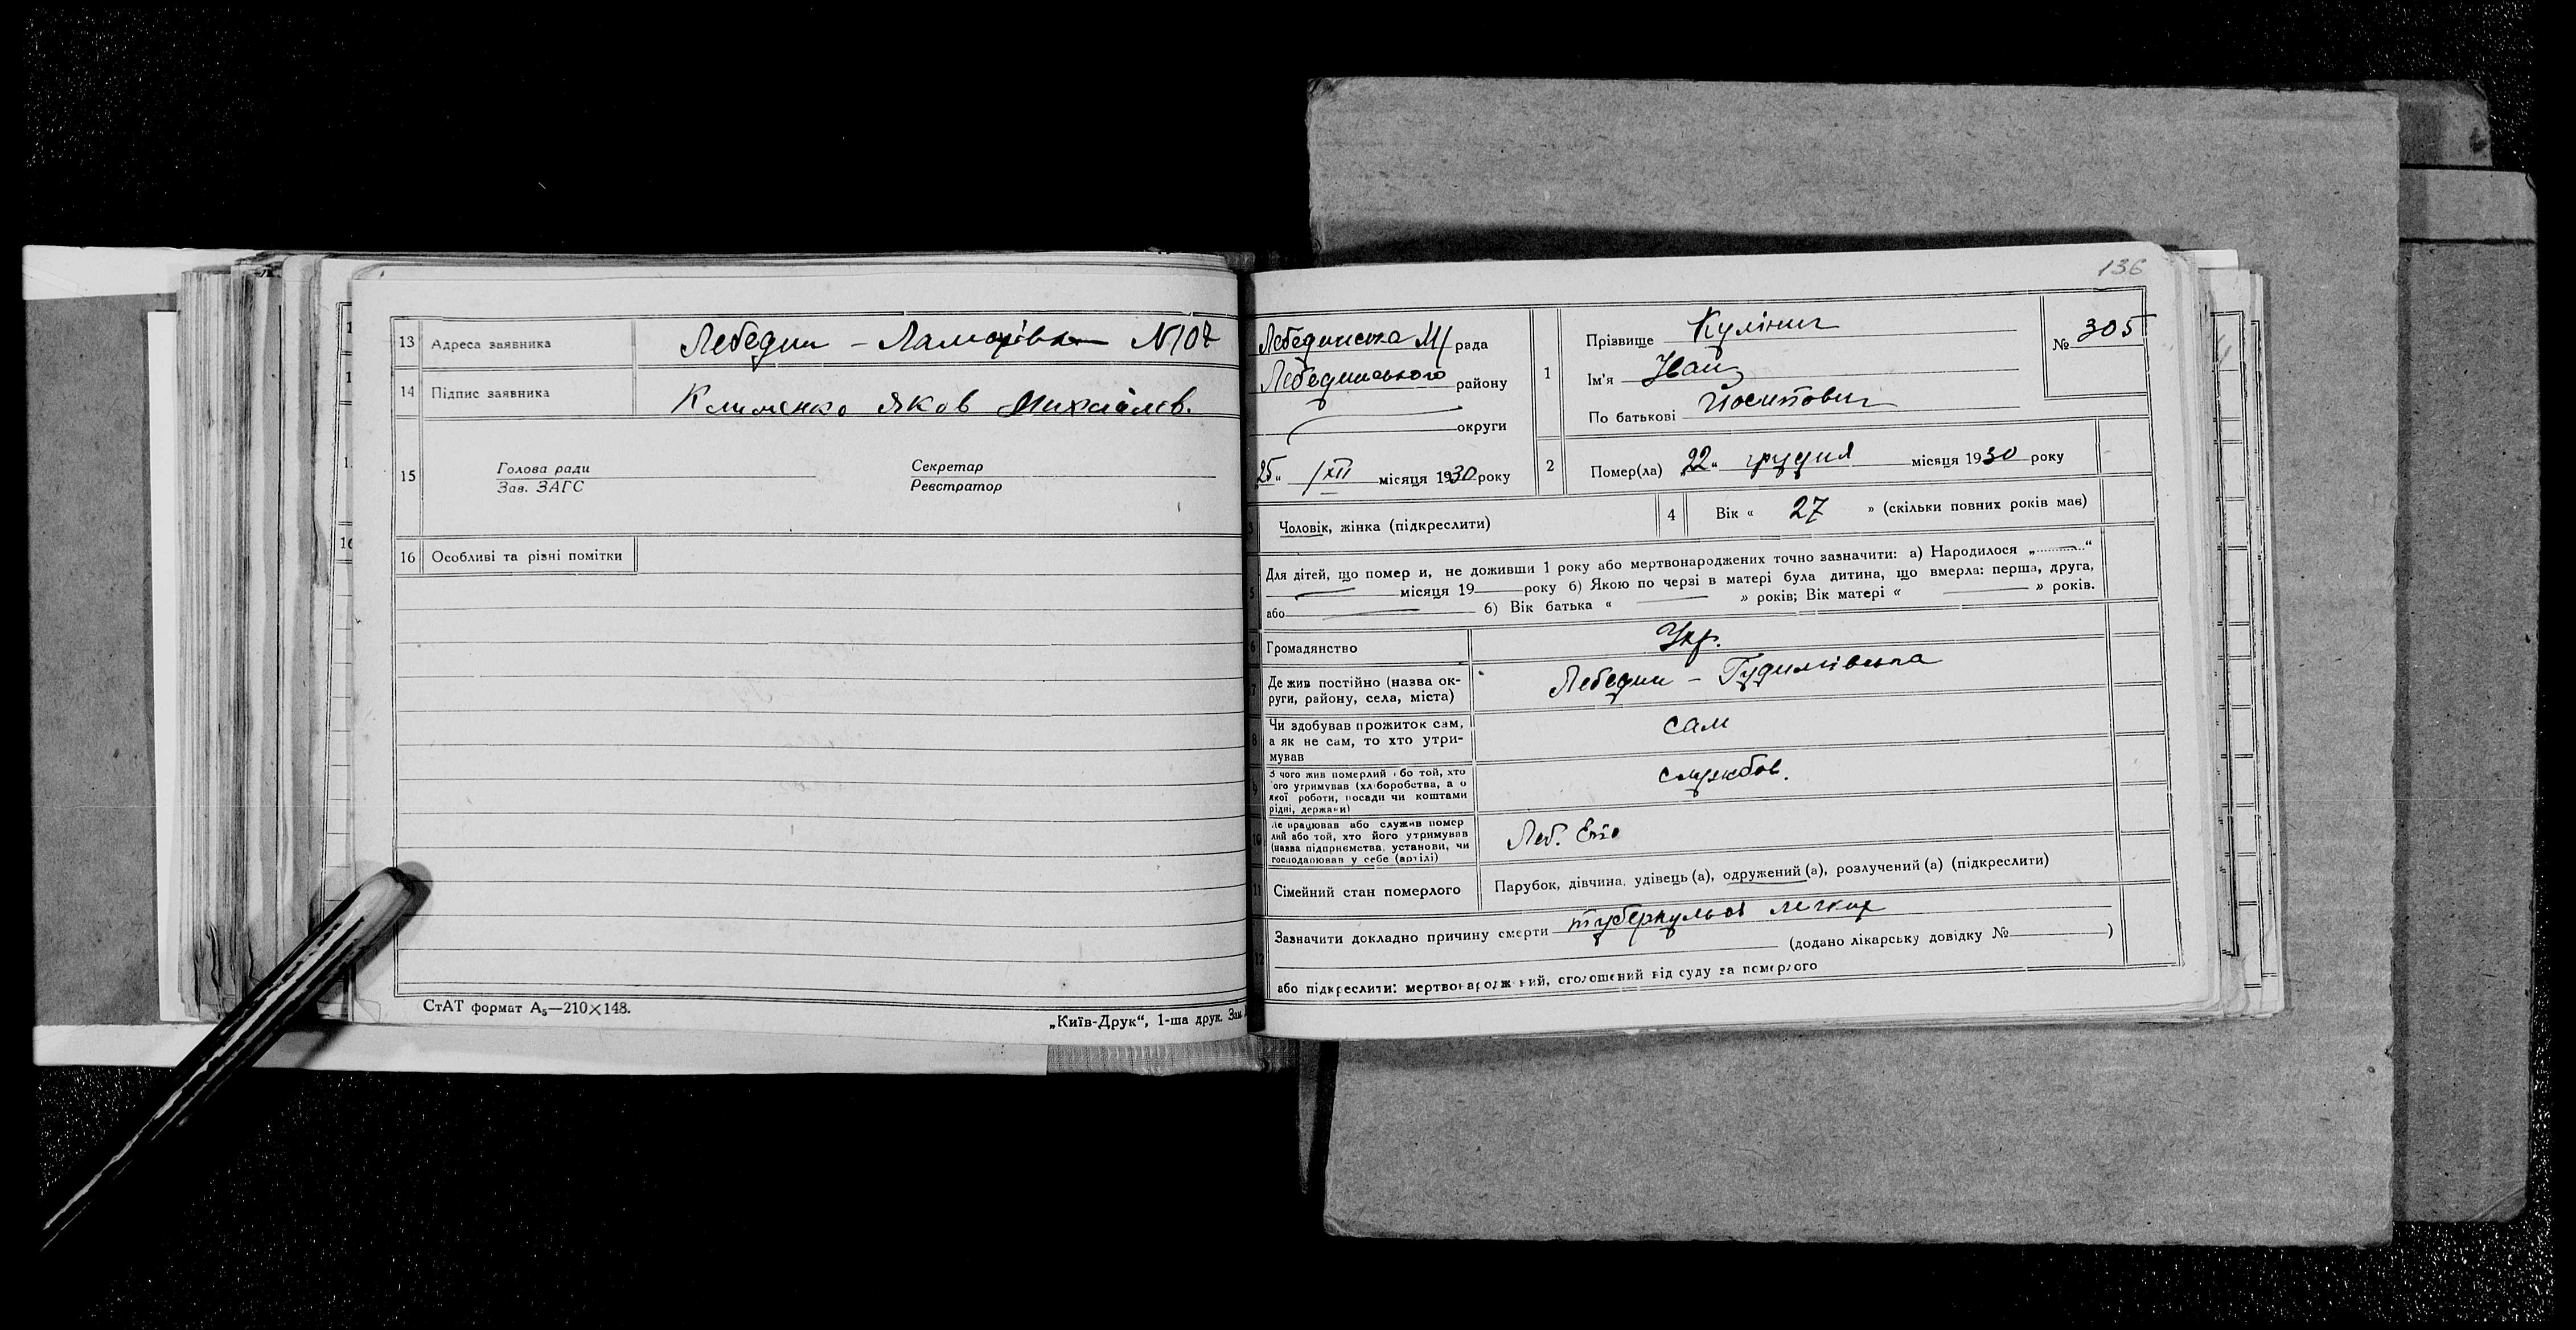 13 Адреса заявника Лебедин – N 107
14 Підпис заявника Клименко Яков Михайлов.
15 Голова ради Секретар
Зав. ЗАГС Реєстратор
16 Особливі та різні помітки
СтАТ формат А₅—210×148.
„Київ-Друк“, 1-ша друк. Зам.
136
Лебединська М/ рада
Лебединського району
округи
25 „ /XII місяця 1930 року
1 Прізвище Кулінич
Ім'я Іван
По батькові Йосипович
№ 305
2 Помер(ла) „22„ грудня місяця 1930 року
3 Чоловік, жінка (підкреслити)
4 Вік « 27 » (скільки повних років має)
5 Для дітей, що помер и, не доживши 1 року або мертвонароджених точно зазначити: а) Народилося „..........“
місяця 19 року б) Якою по черзі в матері була дитина, що вмерла: перша, друга,
або б) Вік батька « » років; Вік матері « » років.
6 Громадянство Укр.
7 Де жив постійно (назва ок-
руги, району, села, міста) Лебедин – Гудимівська
8 Чи здобував прожиток сам,
а як не сам, то хто утри-
мував сам
9 З чого жив померлий або той, хто
його утримував (хліборобства, а о
якої роботи, посади чи коштами
рідні, держави) службов.
10 Де працював або служив помер
лий або той, хто його утримував
(назва підприємства, установи, чи
господарював у себе (артілі) Леб.
11 Сімейний стан померлого Парубок, дівчина, удівець (а), одружений (а), розлучений (а) (підкреслити)
12 Зазначити докладно причину смерти туберкульоз легких
(додано лікарську довідку № )
або підкреслити: мертвонароджений, оголошений від суду за померлого